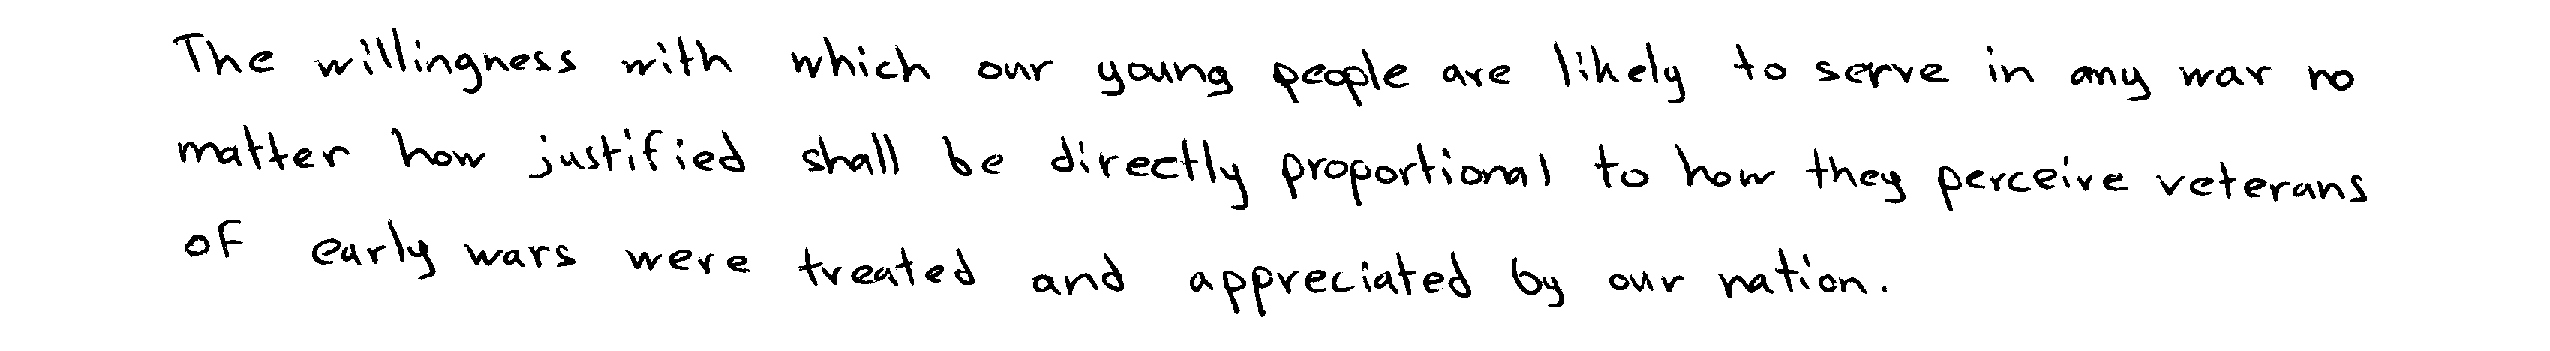 The willingness with which our young people are likely to serve in any war no
matter how justified shall be directly proportional to how they perceive veterans
of early wars were treated and appreciated by our nation.